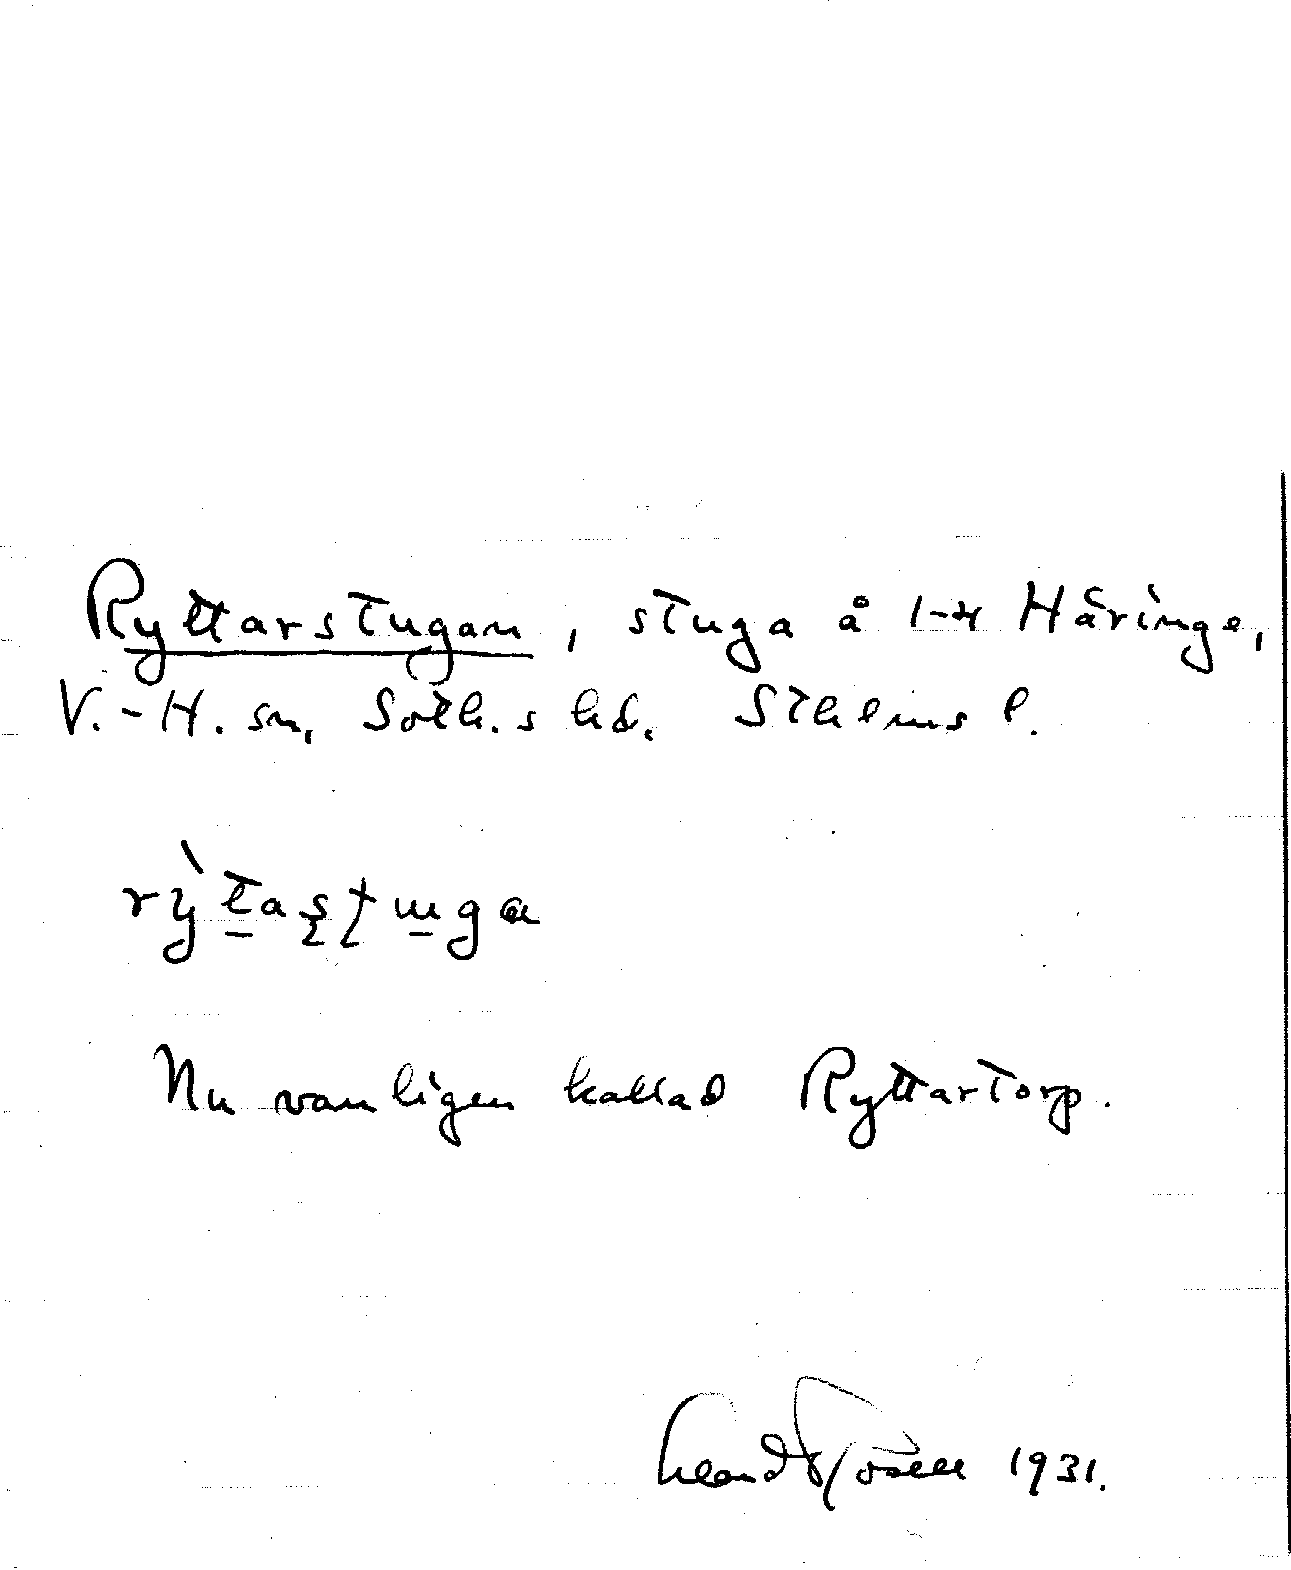 Ryttarstugan, stuga å 1-4 Häringe,
V.-H. sn, Soth.s hd. Sthlms l.
rỳtastuga
Nu vanligen kallad Ryttartorp.
1931.